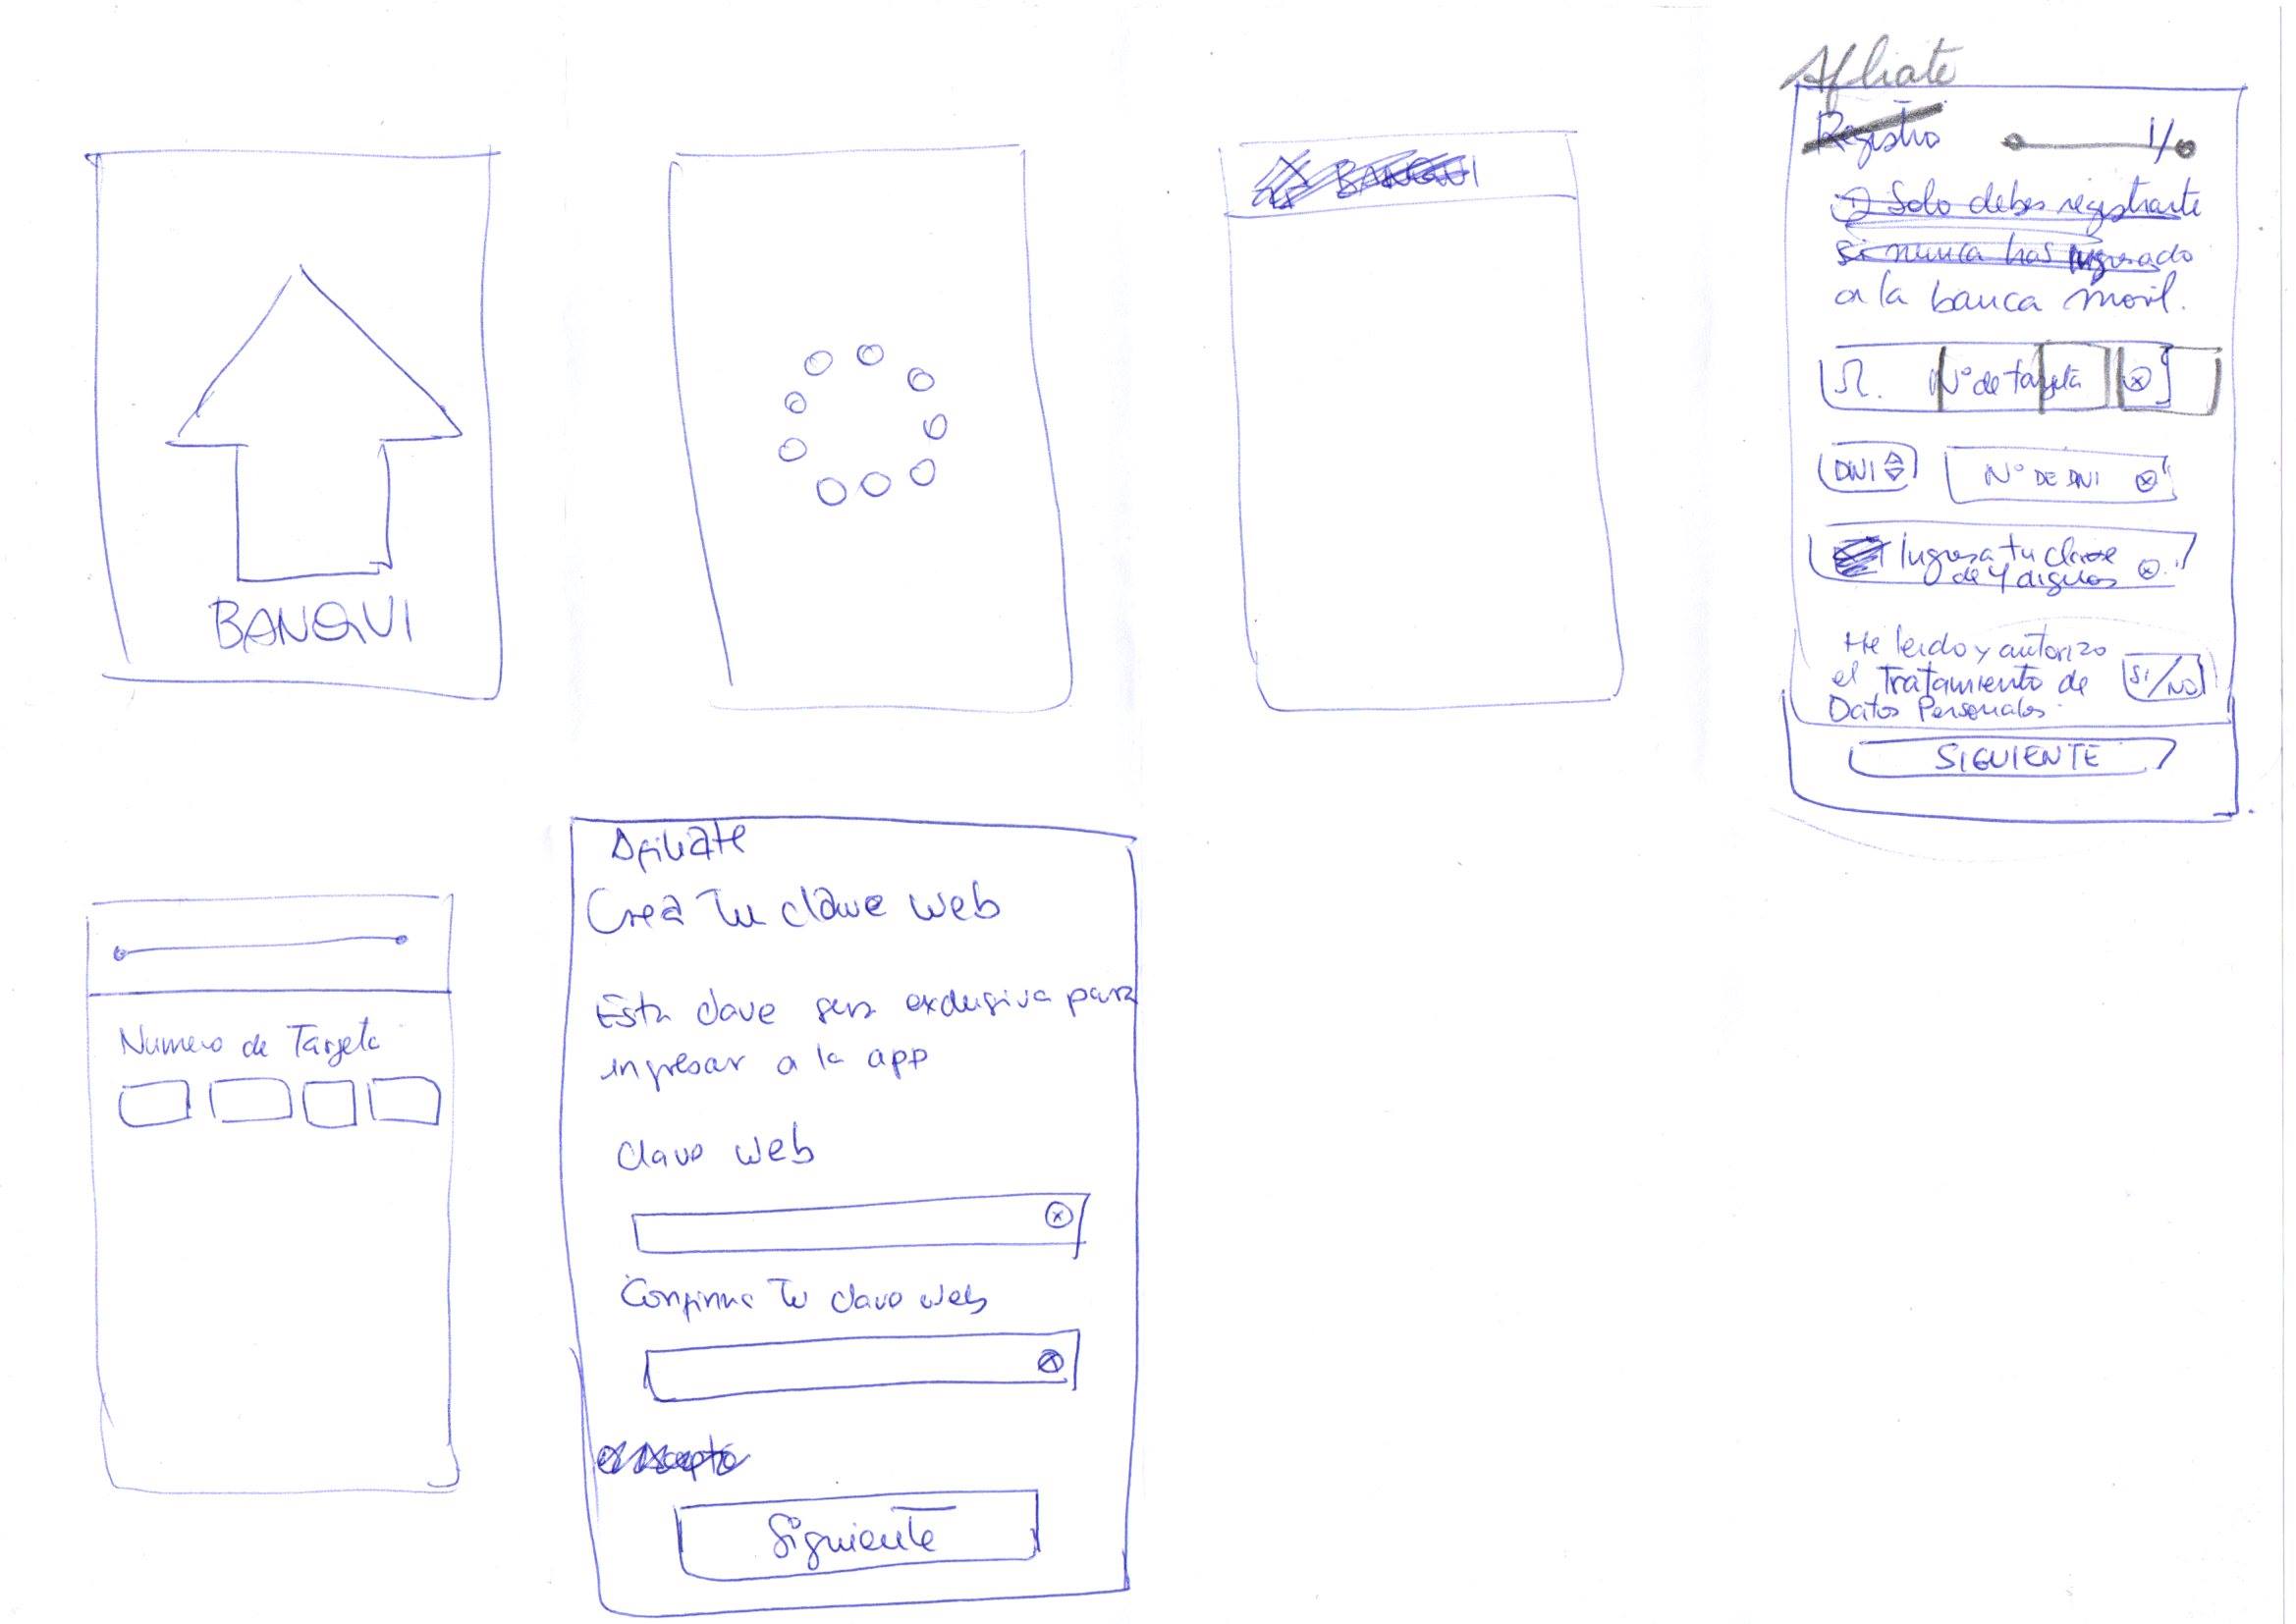 BANQUI
BANQUI
Afiliate
Registro
1/
① Solo debes registrarte
si nunca has ingresado
a la banca movil.
N° de tarjeta
DNI
N° DE DNI
Ingresa tu clave
de 4 digitos
He leido y autorizo
el Tratamiento de
Datos Personales.
SI/NO
SIGUIENTE
Numero de Tarjeta
Afiliate
Crea Tu clave web
Esta clave sera exclusiva para
ingresar a la app
Clave web
Confirma Tu clave web
Acepto
Siguiente